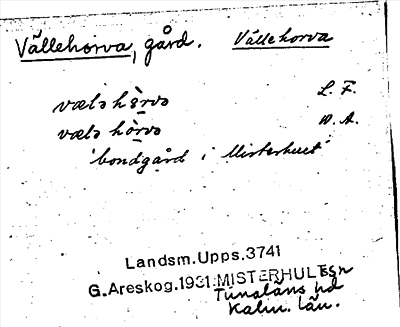 Vällehorva, gård. Vällehorva
vælə hòrvə L. F.
vælə hòrvə W. A.
'bondgård i Misterhult'
Landsm.Upps.3741
G.Areskog.1931.MISTERHULT sn
Tunaläns hd
Kalm. län.